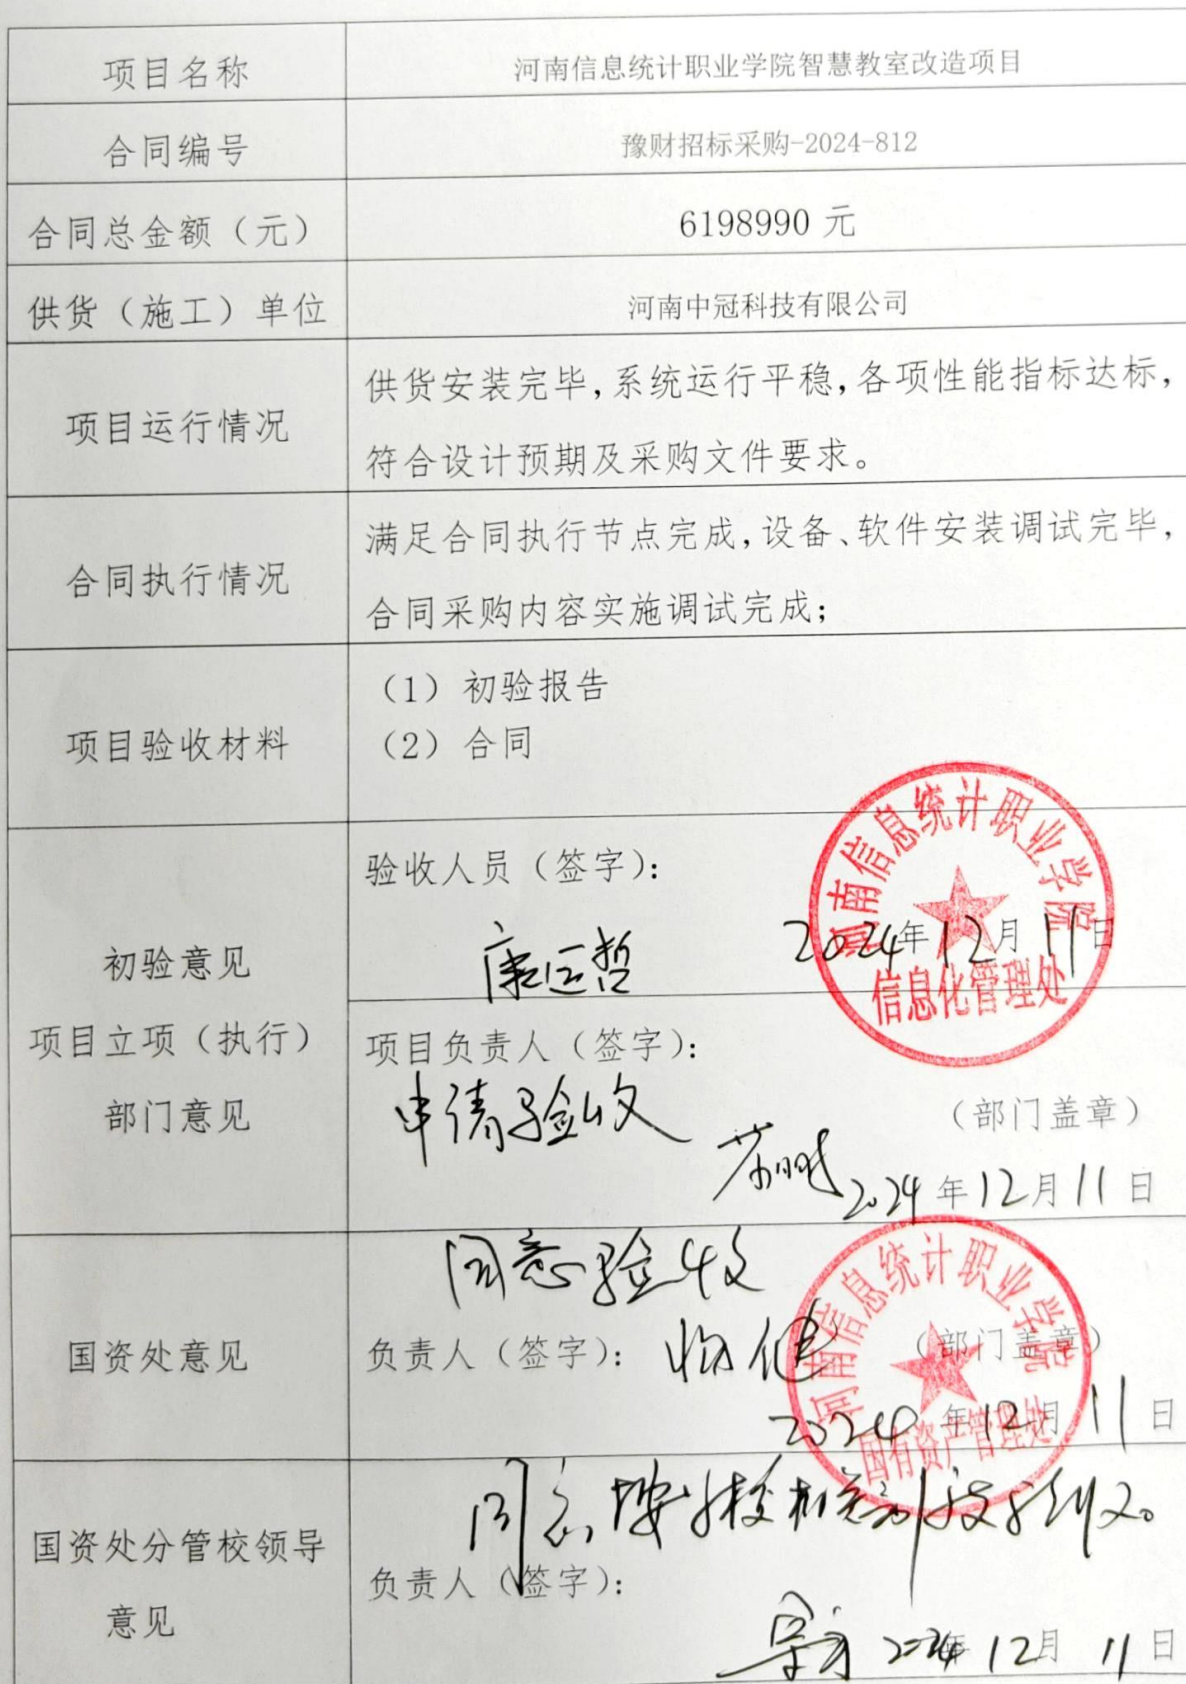 项目名称
河南信息统计职业学院智慧教室改造项目
合同编号
豫财招标采购-2024-812
合同总金额（元）
6198990 元
供货（施工）单位
河南中冠科技有限公司
项目运行情况
供货安装完毕，系统运行平稳，各项性能指标达标，
符合设计预期及采购文件要求。
合同执行情况
满足合同执行节点完成，设备、软件安装调试完毕，
合同采购内容实施调试完成；
项目验收材料
（1）初验报告
（2）合同
初验意见
项目立项（执行）
部门意见
验收人员（签字）：
2024年12月11日
河南信息统计职业学院
信息化管理处
项目负责人（签字）：
申请验收
（部门盖章）
2024年12月11日
国资处意见
同意验收
负责人（签字）：
（部门盖章）
2024年12月11日
河南信息统计职业学院
国有资产管理处
国资处分管校领导
意见
同意，按学校相关
负责人（签字）：
2024年12月11日